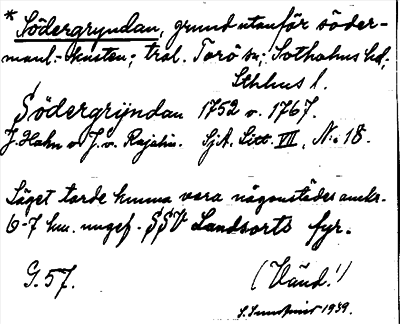 * Södergryndan, grund utanför söder-
manl.-kusten; trol. Torö sn; Sotholms hd,
Sthlms l.
Södergrÿndan 1752 o. 1767.
J. Hahn o. J. v. Rajalin. SjA. Litt. VII, N:o 18.
Läget torde kunna vara någonstädes omkr.
6-7 km. ungef. SSV Landsorts fyr.
G. 57. (Vänd!)
1939.